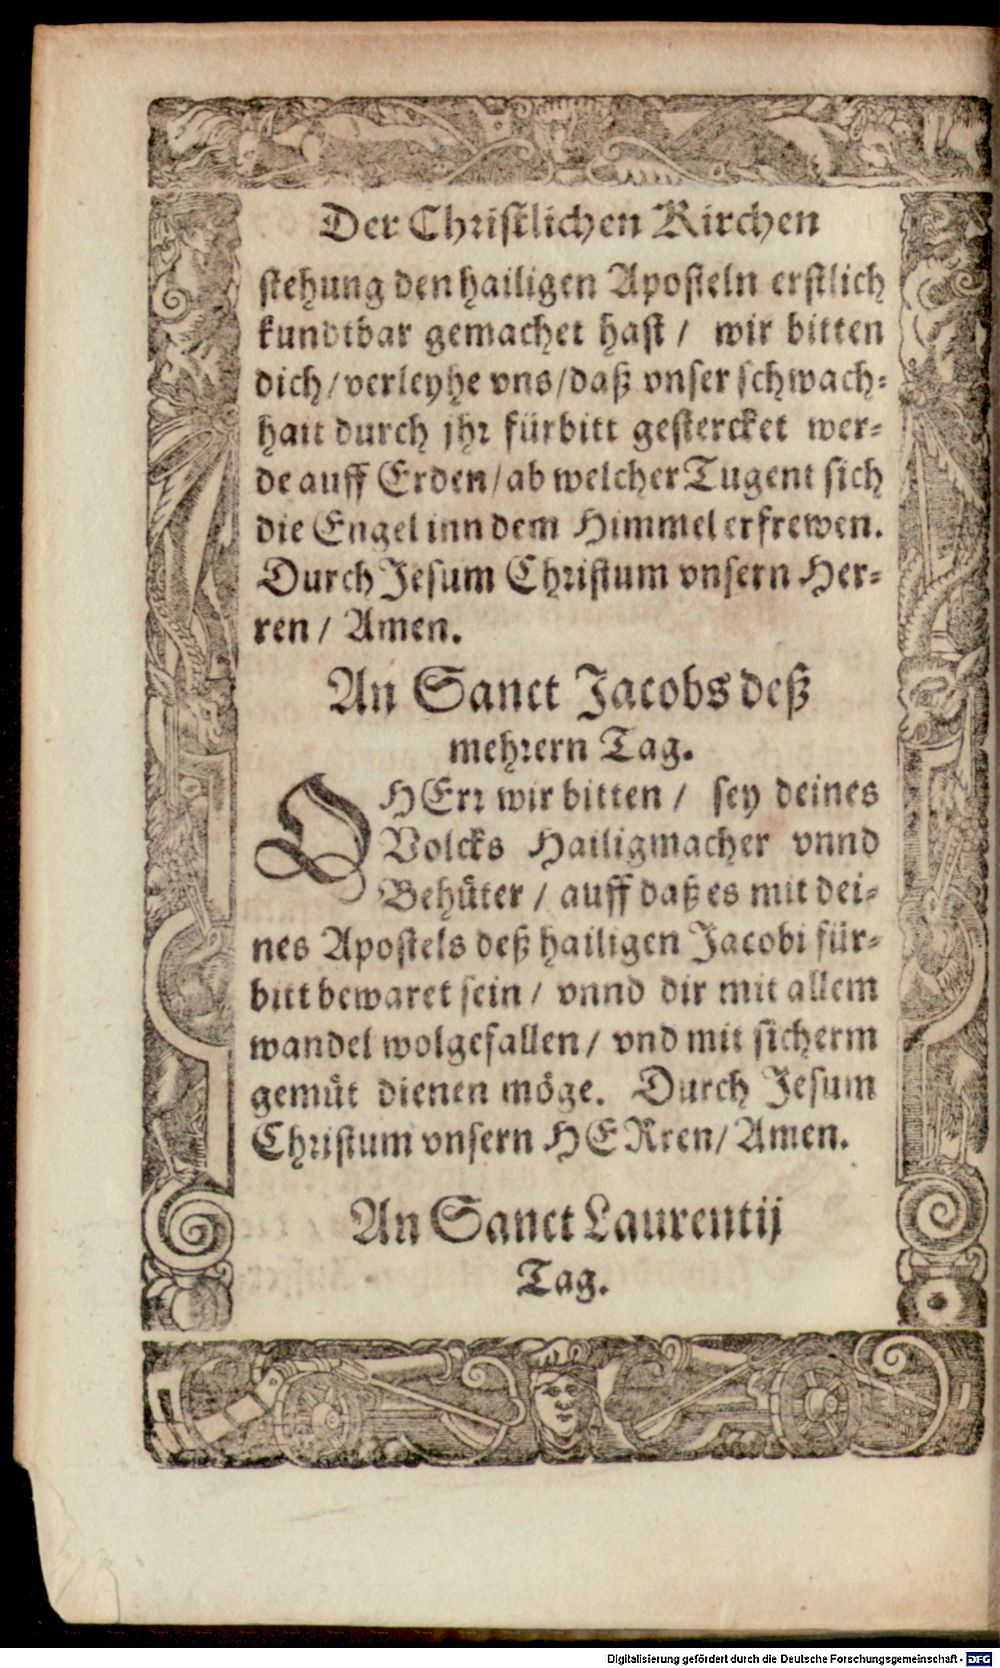 Der Christlichen Kirchen
stehung den hailigen Aposteln erstlich
kundtbar gemachet hast / wir bitten
dich / verleyhe vns / daß vnser schwach-
hait durch jhr fürbitt gestercket wer-
de auff Erden / ab welcher Tugent sich
die Engel inn dem Himmel erfrewen.
Durch Jesum Christum vnsern Her-
ren / Amen.
An Sanct Jacobs deß
mehrern Tag.
O HErr wir bitten / sey deines
Volcks Hailigmacher vnnd
Behüter / auff daß es mit dei-
nes Apostels deß hailigen Jacobi für-
bitt bewaret sein / vnnd dir mit allem
wandel wolgefallen / vnd mit sicherm
gemüt dienen möge. Durch Jesum
Christum vnsern HERren / Amen.
An Sanct Laurentij
Tag.
Digitalisierung gefördert durch die Deutsche Forschungsgemeinschaft - DFG